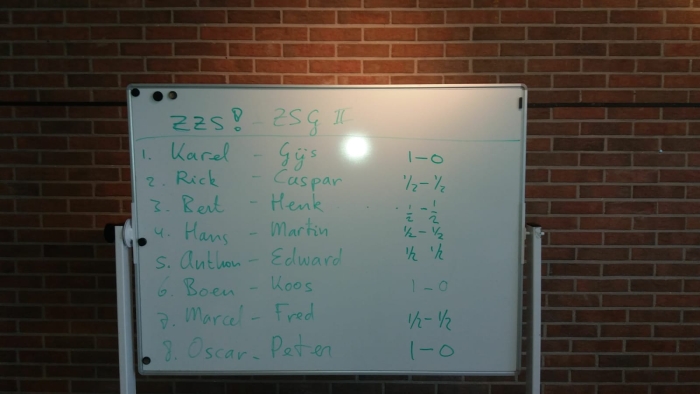 ZZS! - ZSG II
1. Karel - Gijs 1-0
2. Rick - Caspar 1/2-1/2
3. Bert - Henk . . . 1/2-1/2
4. Hans - Martin 1/2-1/2
5. Anthon - Edward 1/2 1/2
6. Boen - Koos 1-0
7. Marcel - Fred 1/2-1/2
8. Oscar - Peter 1-0